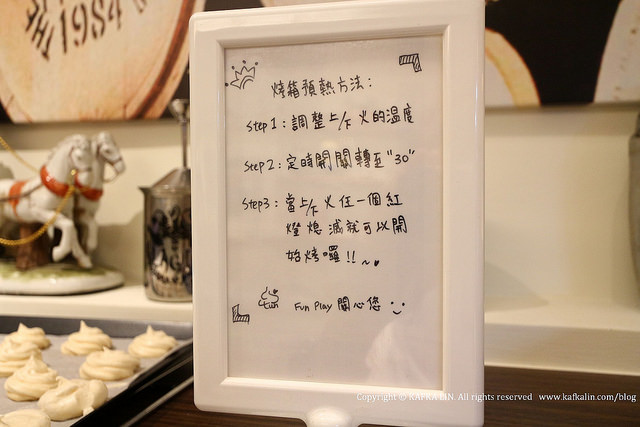 1984
烤箱預熱方法：
Step 1：調整上/下火的溫度
Step 2：定時開關轉至"30"
Step3：當上/下火任一個紅
燈熄滅就可以開
始烤囉!!~
Fun
Fun Play 關心您
Copyright © KAFKALIN. All rights reserved www.kafkalin.com/blog